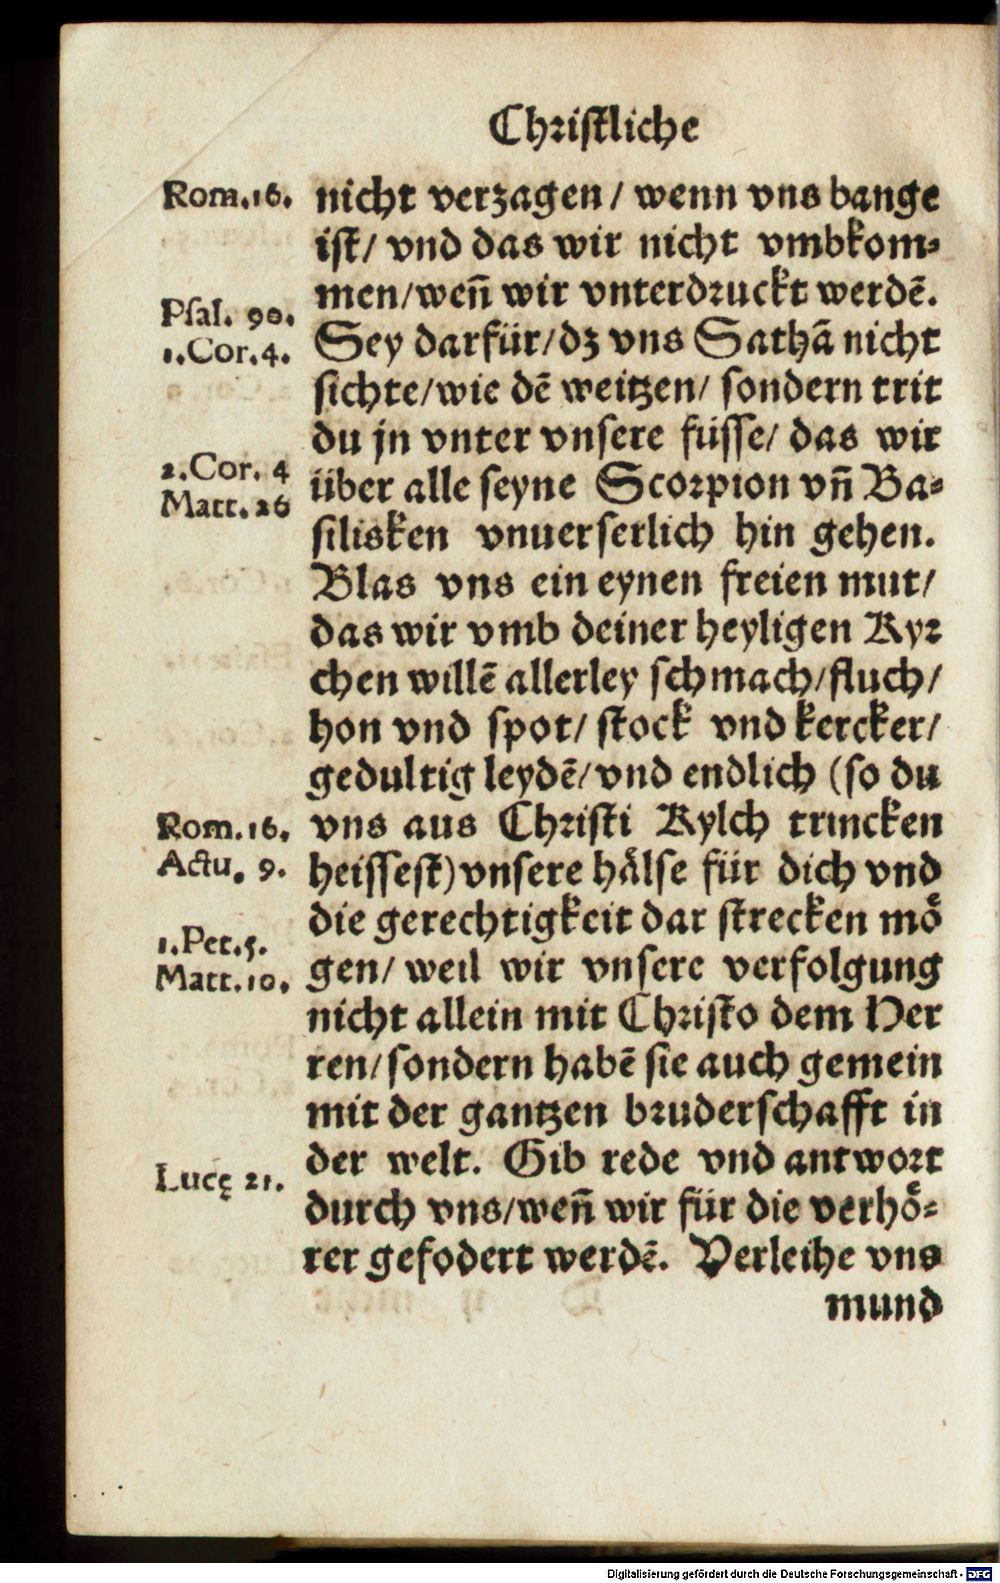 Christliche
Rom.16.
nicht verzagen/ wenn vns bange
ist/ vnd das wir nicht vmbkom-
men/weñ wir vnterdruckt werdẽ.
Psal. 90.
Sey darfür/dz vns Sathã nicht
1.Cor.4.
sichte/wie dẽ weitzen/ sondern trit
du jn vnter vnsere füsse/ das wir
2.Cor. 4
über alle seyne Scorpion vñ Ba-
Matt.26
silisken vnuerserlich hin gehen.
Blas vns ein eynen freien mut/
das wir vmb deiner heyligen Kyr
chen willẽ allerley schmach/fluch/
hon vnd spot/ stock vnd kercker/
gedultig leydẽ/vnd endlich (so du
Rom.16.
vns aus Christi Kylch trincken
Actu. 9.
heissest)vnsere hälse für dich vnd
die gerechtigkeit dar strecken mö
1.Pet.5.
gen/ weil wir vnsere verfolgung
Matt.10.
nicht allein mit Christo dem Her
ren/sondern habẽ sie auch gemein
mit der gantzen bruderschafft in
der welt. Gib rede vnd antwort
Lucę 21.
durch vns/weñ wir für die verhö-
rer gefodert werdẽ. Verleihe vns
mund
Digitalisierung gefördert durch die Deutsche Forschungsgemeinschaft - DFG